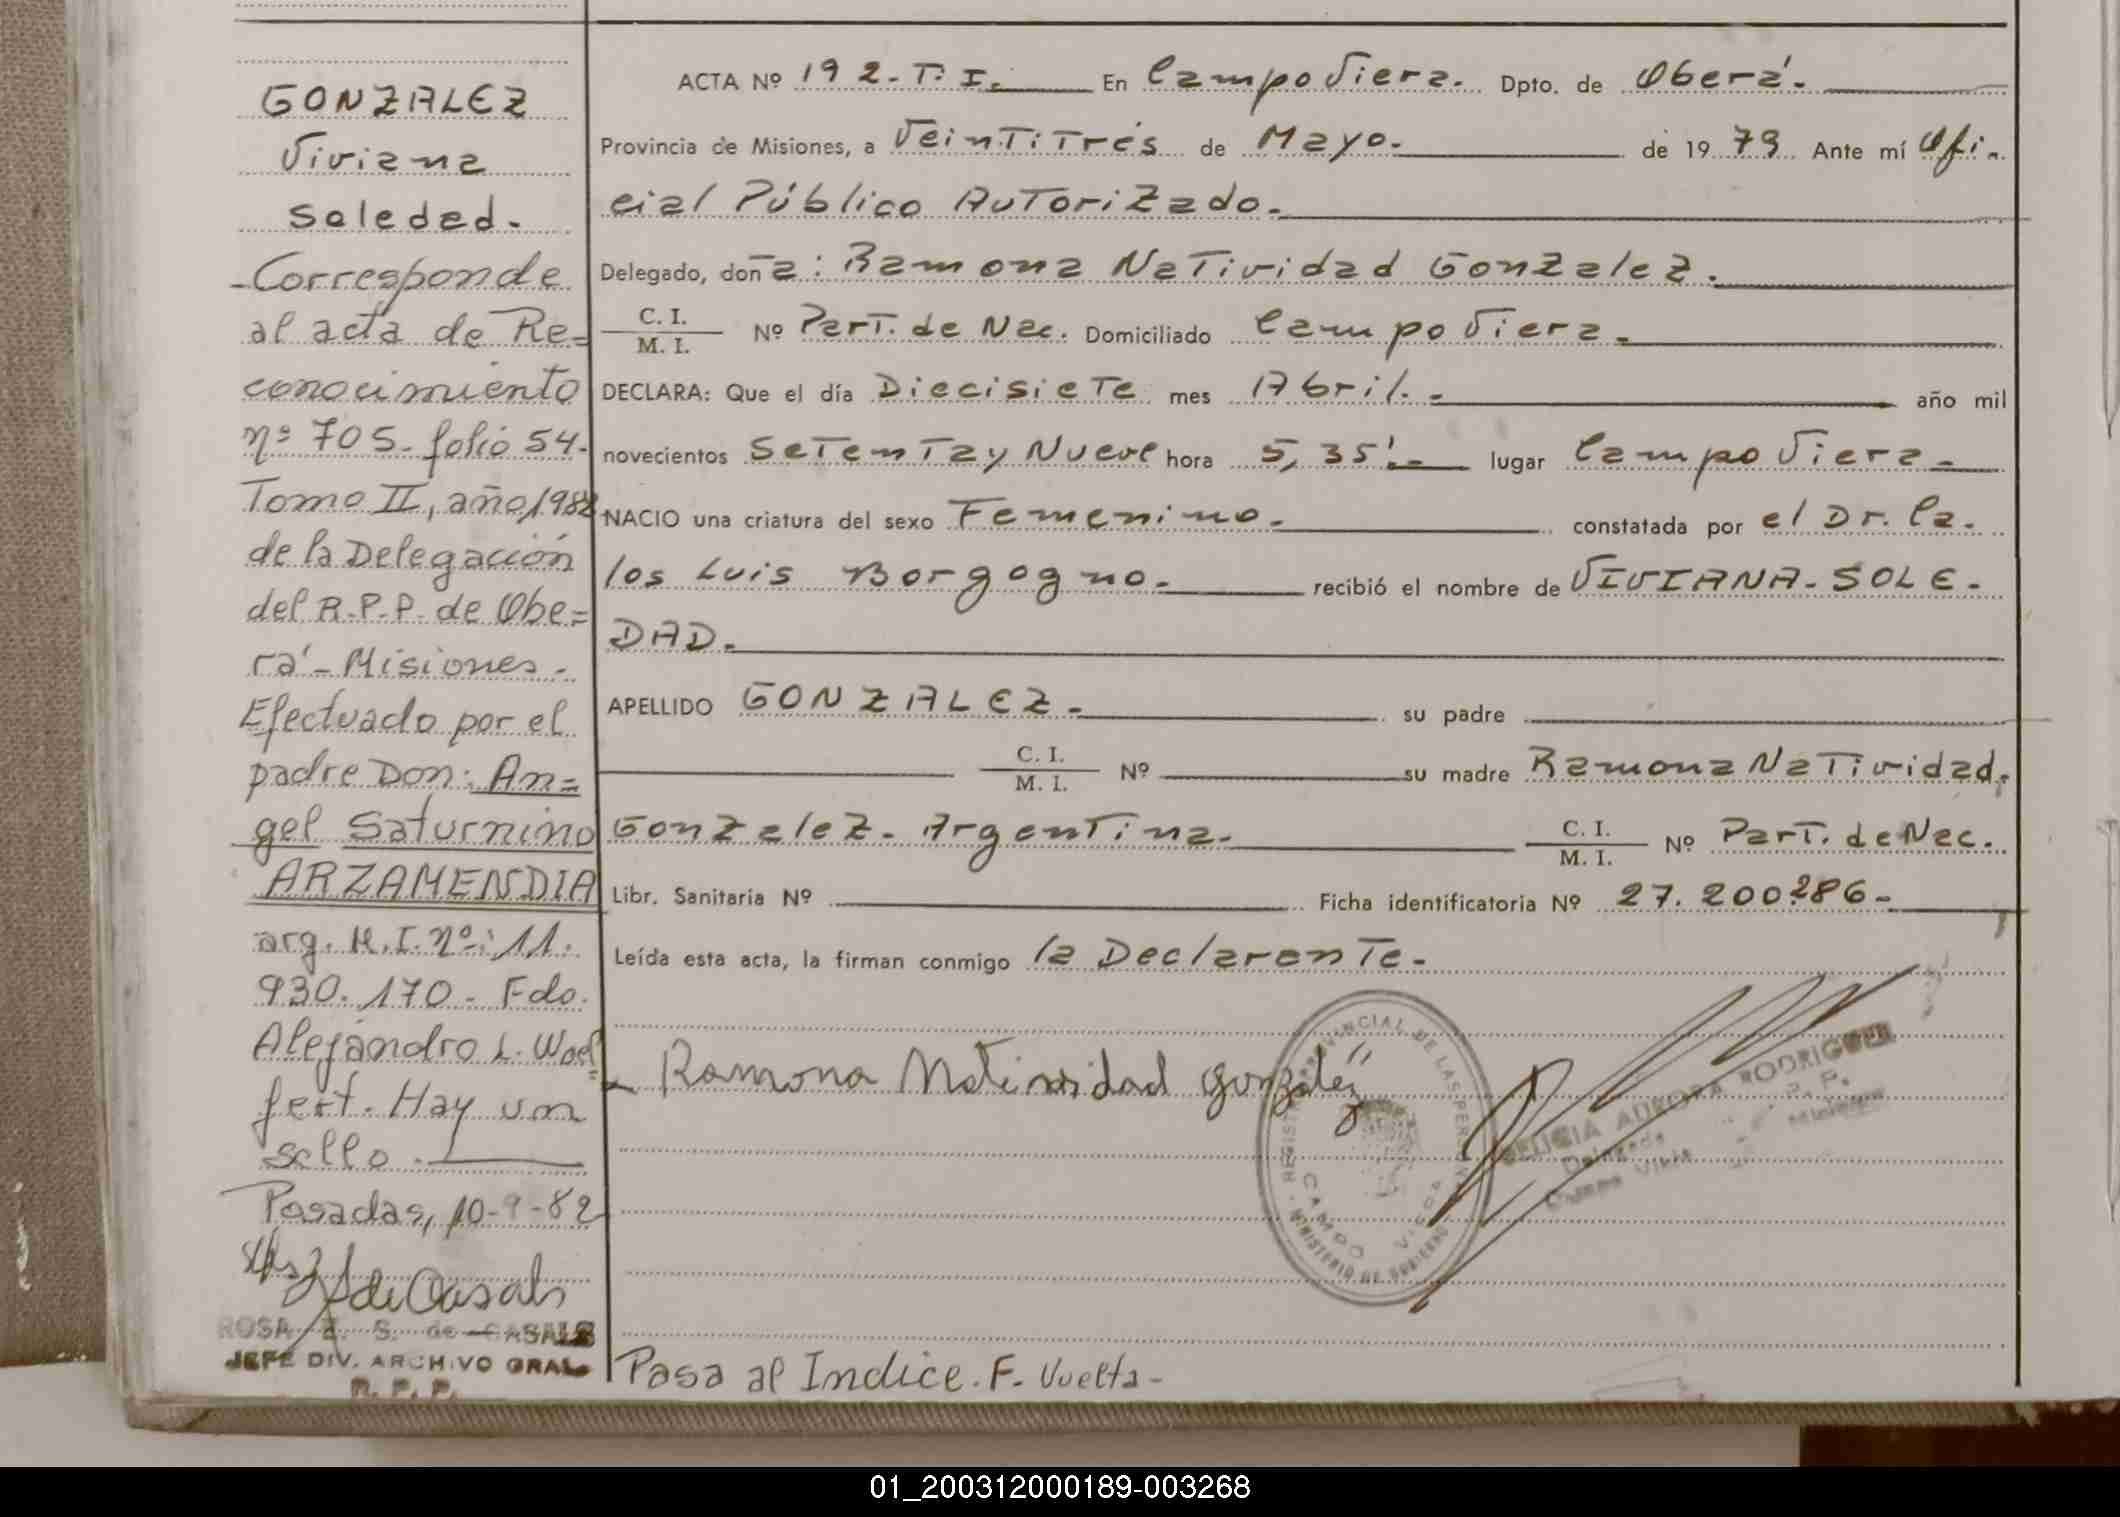 GONZALEZ
Viviana
Soledad.
-Corresponde
al acta de Re=
conocimiento
nº 705- folio 54-
Tomo II, año 1982
de la Delegación
del R.P.P. de Obe=
rá - Misiones.-
Efectuado por el
padre Don: An=
gel Saturnino
ARZAMENDIA
arg. M.I. nº: 11.
930.170- Fdo.
Alejandro L. Woel=
fert. Hay un
sello.
Posadas, 10-9-82
de Casals
ROSA E. S. de CASALS
JEFE DIV. ARCHIVO GRAL
R. P. P.
ACTA Nº 192-T.I. En Campo Viera. Dpto. de Oberá.
Provincia de Misiones, a Veintitrés de Mayo. de 1979 Ante mí Ofi-
cial Público Autorizado.
Delegado, don-a: Ramona Natividad Gonzalez.
C. I.
M. I. Nº Part. de Nac. Domiciliado Campo Viera.
DECLARA: Que el día Diecisiete mes Abril.- año mil
novecientos Setenta y Nueve hora 5,35'.- lugar Campo Viera.
NACIO una criatura del sexo Femenino. constatada por el Dr. Ca-
los Luis Borgogno. recibió el nombre de VIVIANA-SOLE-
DAD.
APELLIDO GONZALEZ. su padre
C. I.
M. I. Nº su madre Ramona Natividad.
Gonzalez- Argentina.
C. I.
M. I. Nº Part. de Nac.
Libr. Sanitaria Nº Ficha identificatoria Nº 27.200.286-
Leída esta acta, la firman conmigo la Declarante.
Ramona Natividad gonzalez
REGISTRO PROVINCIAL DE LAS PERSONAS
CAMPO VIERA
MINISTERIO DE GOBIERNO
DELICIA AURORA RODRIGUEZ
Delegada R. P. P.
Campo Viera Misiones
Pasa al Indice. F. Vuelta-
01_200312000189-003268